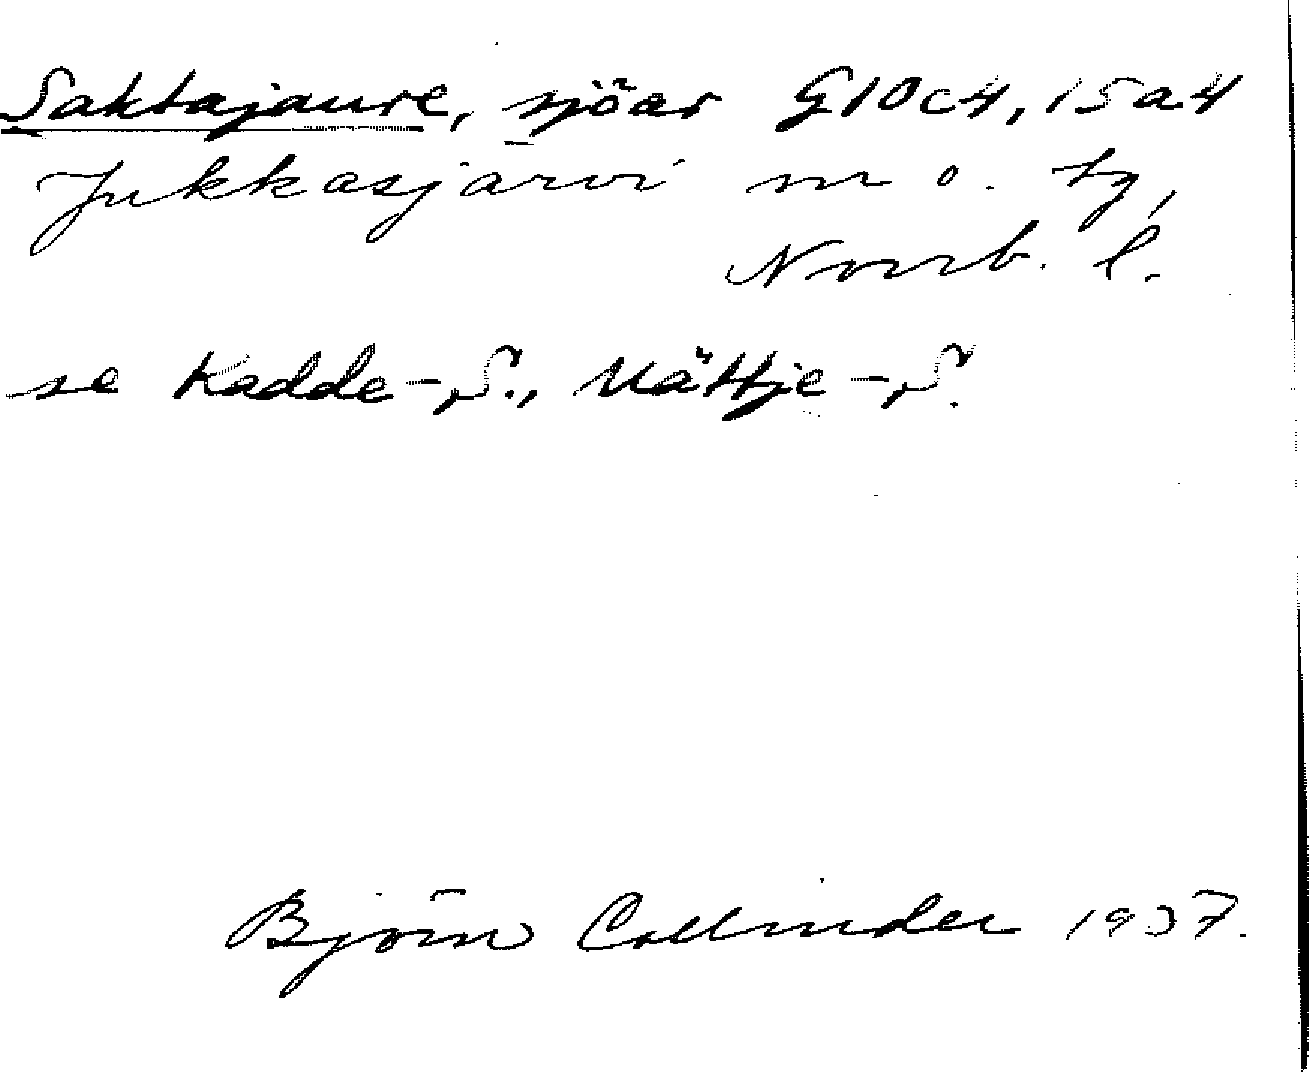 Saktajaure, sjöar G10c4, 15a4
Jukkasjärvi sn o. tg,
Norrb. l.
se Kadde-S., Nättje-S.
Björn Collinder 1937.